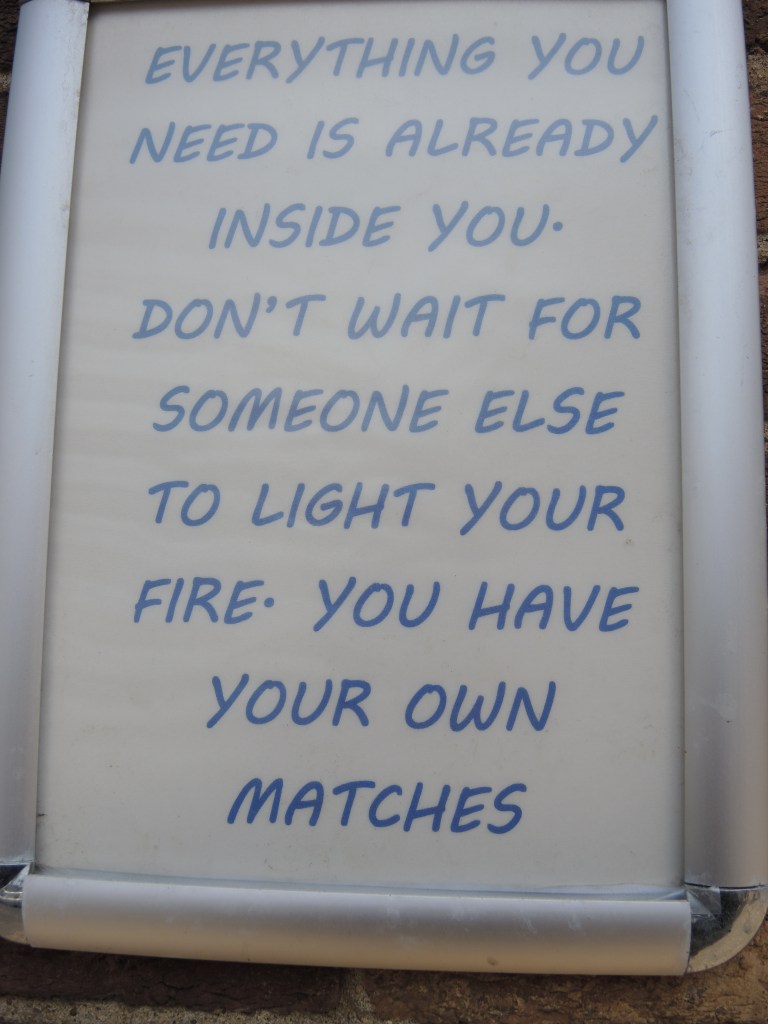 EVERYTHING YOU
NEED IS ALREADY
INSIDE YOU.
DON'T WAIT FOR
SOMEONE ELSE
TO LIGHT YOUR
FIRE. YOU HAVE
YOUR OWN
MATCHES